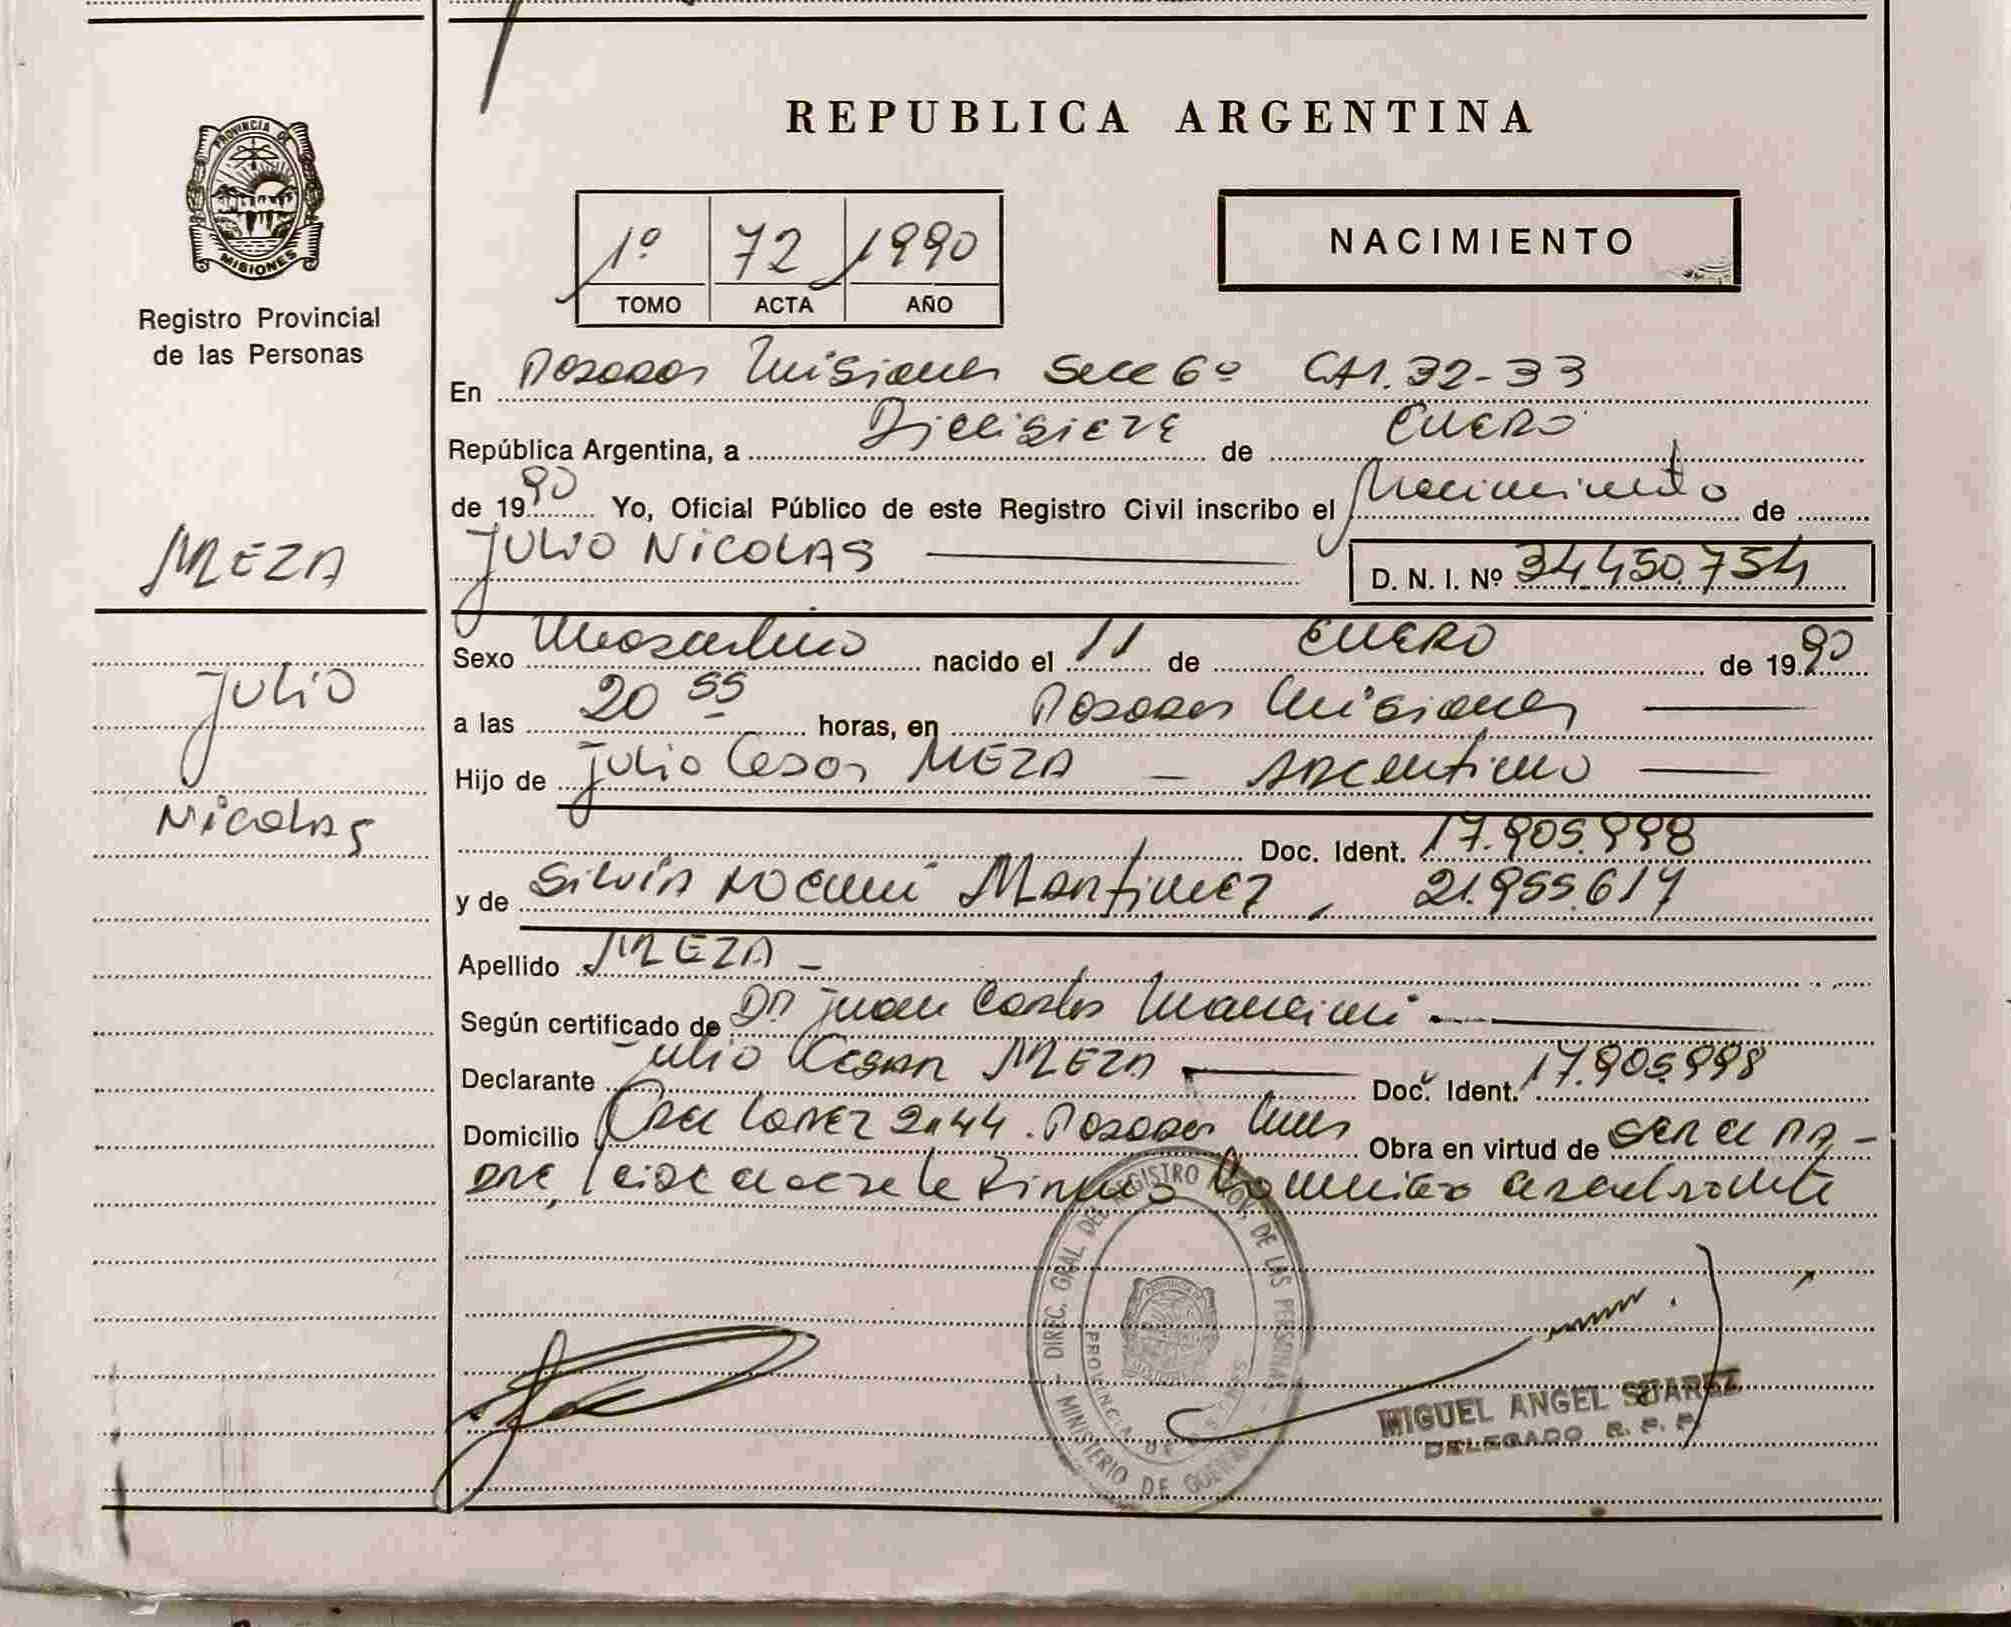 PROVINCIA DE
MISIONES
Registro Provincial
de las Personas
MEZA
Julio
Nicolas
REPUBLICA ARGENTINA
1º 72 1990
TOMO ACTA AÑO
NACIMIENTO
En Posadas Misiones Secc 6º CA1. 32-33
República Argentina, a Diecisiete de ENERO
de 1990 Yo, Oficial Público de este Registro Civil inscribo el Nacimiento de
JULIO NICOLAS D. N. I. Nº 34.450.754
Sexo Masculino nacido el 11 de ENERO de 1990
a las 20 55 horas, en Posadas Misiones
Hijo de Julio Cesar MEZA - Argentino
Doc. Ident. 17.905.998
y de Silvia Noemi Martinez, 21.955.617
Apellido MEZA -
Según certificado de Dr Juan Carlos Mancini
Declarante Julio Cesar MEZA Doc. Ident. 17.905.998
Domicilio Lopez 2144. Posadas Mnes Obra en virtud de ser el pa-
dre, leida el acta la firma conmigo el declarante
DIREC. GRAL DEL REGISTRO PROV. DE LAS PERSONAS - MINISTERIO DE GOBIERNO -
PROVINCIA DE MISIONES
MIGUEL ANGEL SUAREZ
DELEGADO R. P. P.